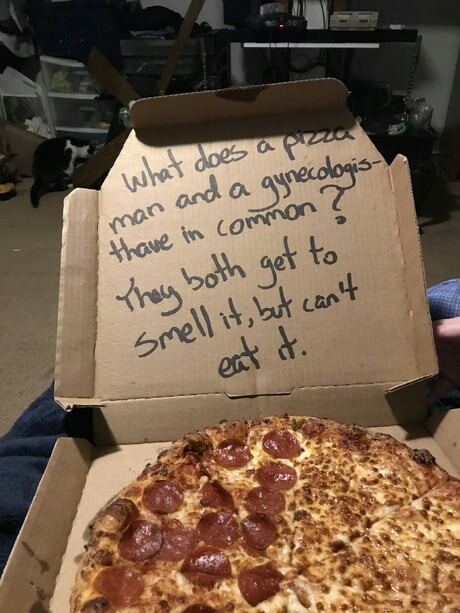 What does a pizza
man and a gynecologis-
thave in common?
They both get to
smell it, but can't
eat it.